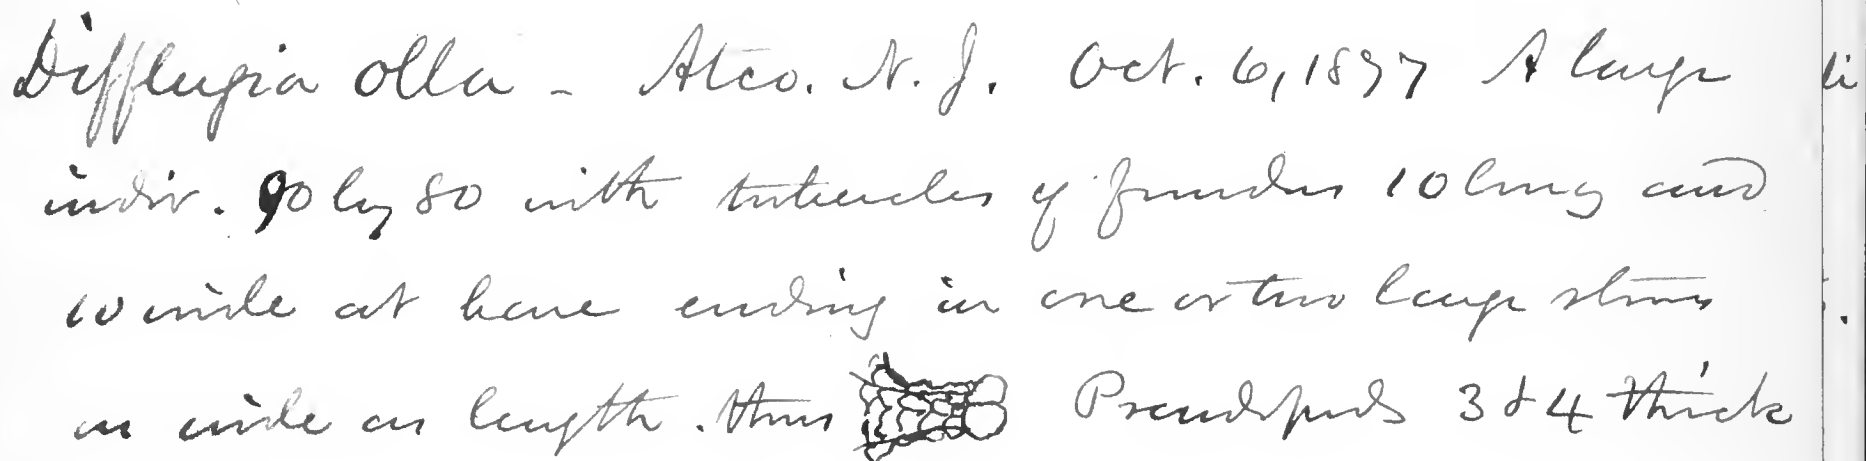 Difflugia olla - Atco. N. J. Oct. 6, 1897 A large
indiv. 90 by 80 with tubercles of fundus 10 long and
10 wide at base ending in one or two large stones
as wide as length. thus Pseudopods 3 & 4 thick